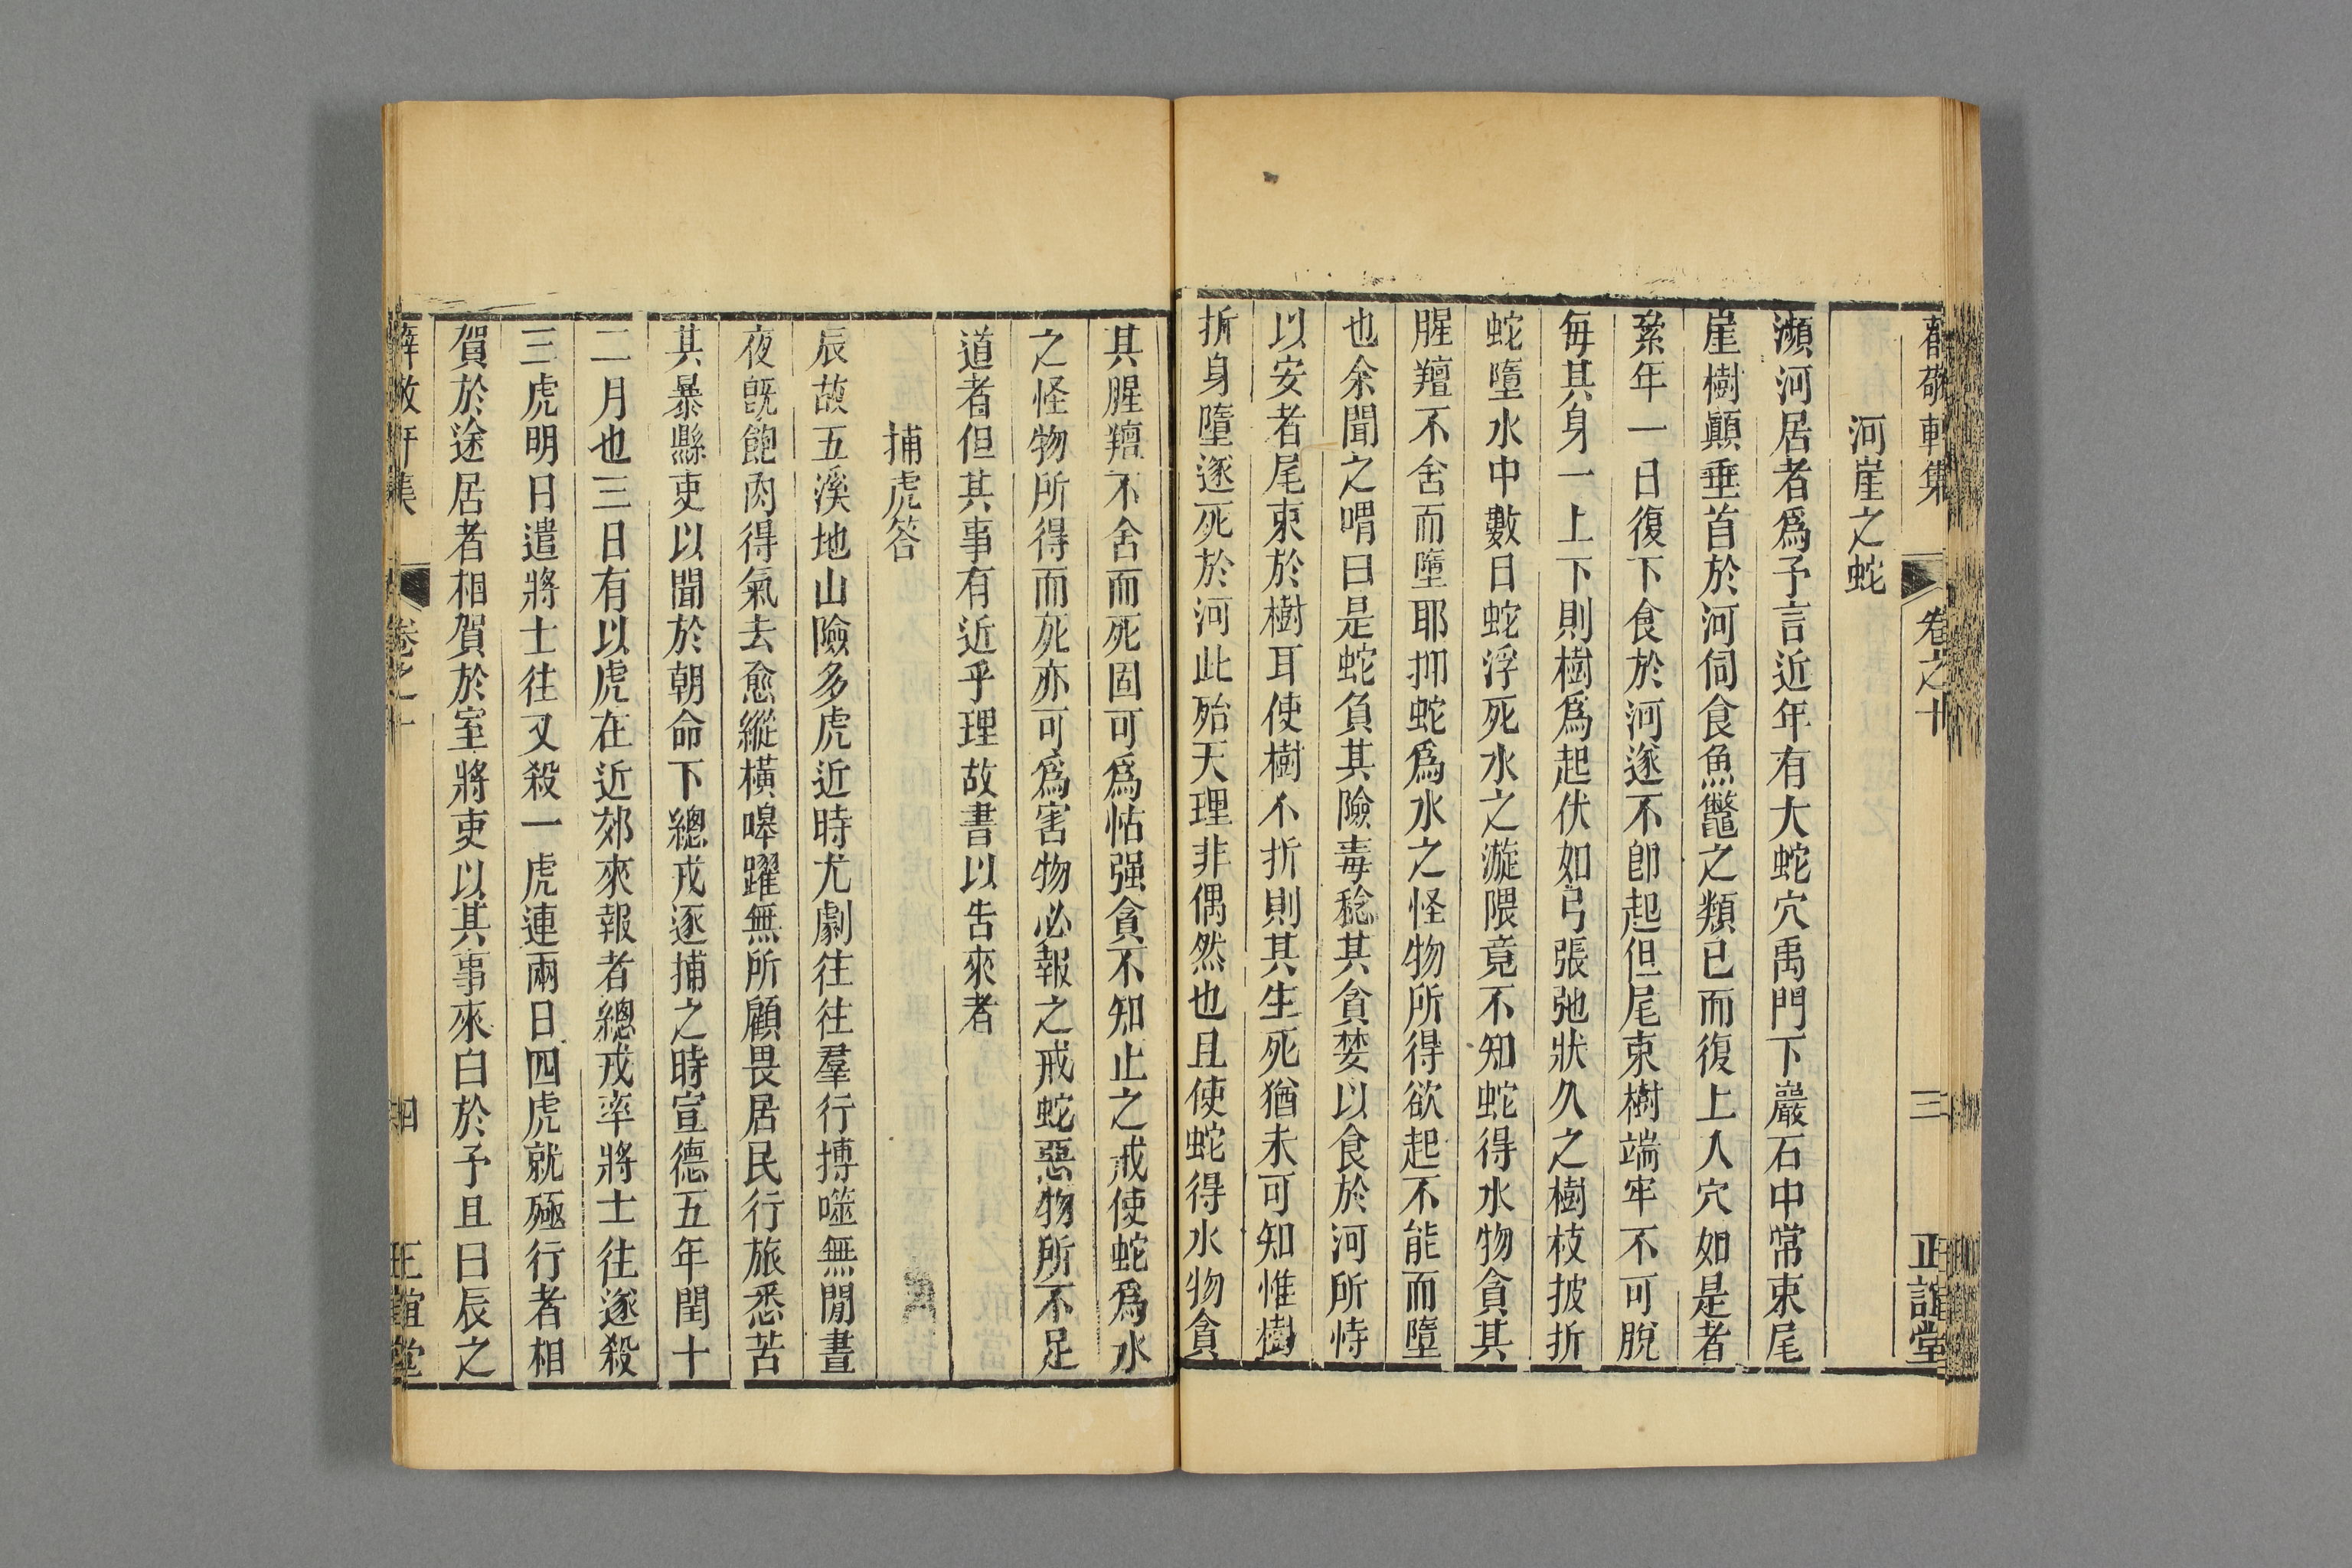 薛敬軒集 卷之十 三 正誼堂
河崖之蛇
瀕河居者爲予言近年有大蛇穴禹門下巖石中常束尾
崖樹顚垂首於河伺食魚鼈之類已而復上入穴如是者
累年一日復下食於河遂不卽起但尾束樹端牢不可脫
每其身一上下則樹爲起伏如弓張弛狀久之樹枝披折
蛇墮水中數日蛇浮死水之漩隈竟不知蛇得水物貪其
腥羶不舍而墮耶抑蛇爲水之怪物所得欲起不能而墮
也余聞之喟曰是蛇負其險毒稔其貪婪以食於河所恃
以安者尾束於樹耳使樹不折則其生死猶未可知惟樹
折身墮遂死於河此殆天理非偶然也且使蛇得水物貪
其腥羶不舍而死固可爲怙强貪不知止之戒使蛇爲水
之怪物所得而死亦可爲害物必報之戒蛇惡物所不足
道者但其事有近乎理故書以告來者
捕虎答
辰故五溪地山險多虎近時尤劇往往羣行搏噬無閒晝
夜旣飽肉得氣去愈縱橫嘷躍無所顧畏居民行旅悉苦
其暴縣吏以聞於朝命下總戎逐捕之時宣德五年閏十
二月也三日有以虎在近郊來報者總戎率將士往遂殺
三虎明日遣將士往又殺一虎連兩日四虎就殛行者相
賀於途居者相賀於室將吏以其事來白於予且曰辰之
薛敬軒集 卷之十 四 正誼堂